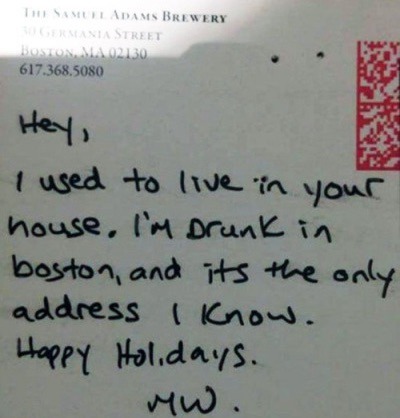 THE SAMUEL ADAMS BREWERY
30 GERMANIA STREET
BOSTON, MA 02130
617.368.5080
Hey,
I used to live in your
house. I'm Drunk in
boston, and its the only
address I Know.
Happy Holidays.
MW.